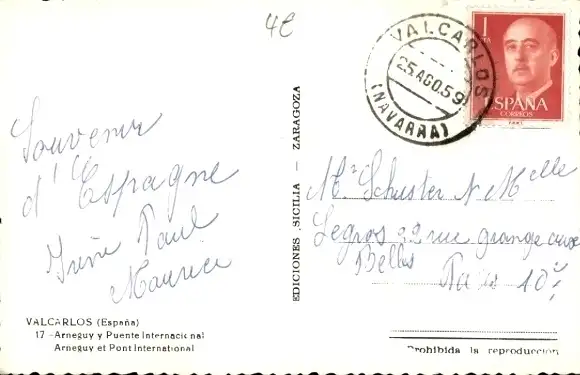 4€
Souvenir
d'Espagne
Irène Paul
Maurice
VALCARLOS (España)
17 - Arneguy y Puente Internacional
Arneguy et Pont International
EDICIONES SICILIA - ZARAGOZA
VALCARLOS
25 AGO.59
(NAVARRA)
1 PTA
ESPAÑA
CORREOS
Mr Schuster Melle
Legros 22 rue grange aux
Belles Paris 10e
Prohibida la reproducción